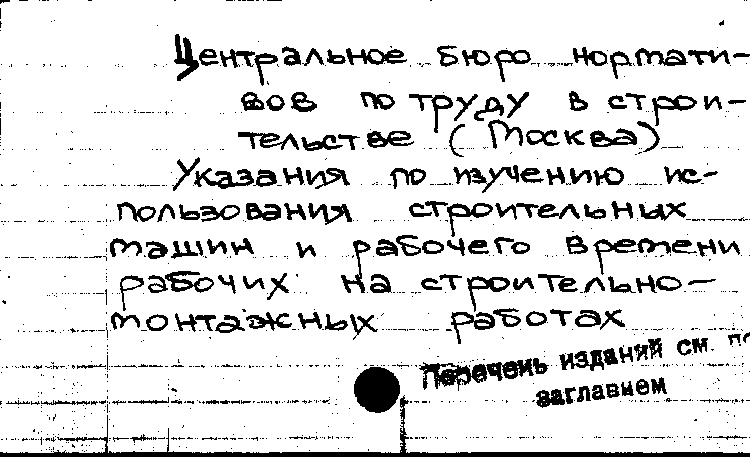 Центральное бюро нормати-
вов по труду в строи-
тельстве (Москва)
Указания по изучению ис-
пользования строительных
машин и рабочего времени
рабочих на строительно-
монтажных работах
Перечень изданий см. по
заглавием